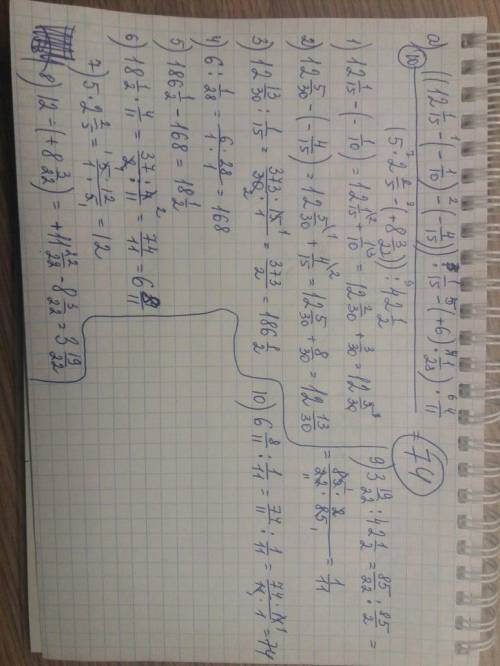 а)
(((12 1/15 - (-1/10)) - (-4/15)) : 1/15 - (+6) : 1/28) · 4/11
10 = 74
(5 · 2 2/5 - (+8 3/22)) : 42 1/2
1) 12 1/15 - (-1/10) = 12 1/15 + 1/10 = 12 2/30 + 3/30 = 12 5/30
2) 12 5/30 - (-4/15) = 12 5/30 + 4/15 = 12 5/30 + 8/30 = 12 13/30
3) 12 13/30 : 1/15 = 373 · 15/30 · 1 = 373/2 = 186 1/2
4) 6 : 1/28 = 6 · 28/1 · 1 = 168
5) 186 1/2 - 168 = 18 1/2
6) 18 1/2 · 4/11 = 37 · 4/2 · 11 = 74/11 = 6 8/11
7) 5 · 2 2/5 = 5 · 12/1 · 5 = 12
8) 12 = (+8 3/22) = +11 22/22 - 8 3/22 = 3 19/22
9) 3 19/22 : 42 1/2 = 85/22 : 85/2 =
= 85 · 2/22 · 85 = 1/11
10) 6 8/11 : 1/11 = 74/11 : 1/11 = 74 · 11/11 · 1 = 74